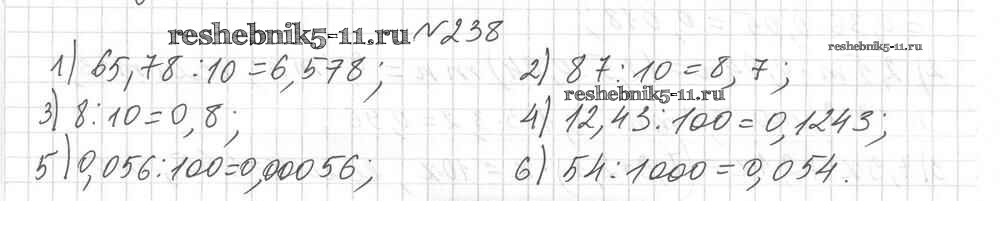 reshebnik5-11.ru №238
reshebnik5-11.ru
1) 65,78 : 10 = 6,578; 2) 87 : 10 = 8,7;
reshebnik5-11.ru
3) 8 : 10 = 0,8; 4) 12,43 : 100 = 0,1243;
5) 0,056 : 100 = 0,00056; 6) 54 : 1000 = 0,054.